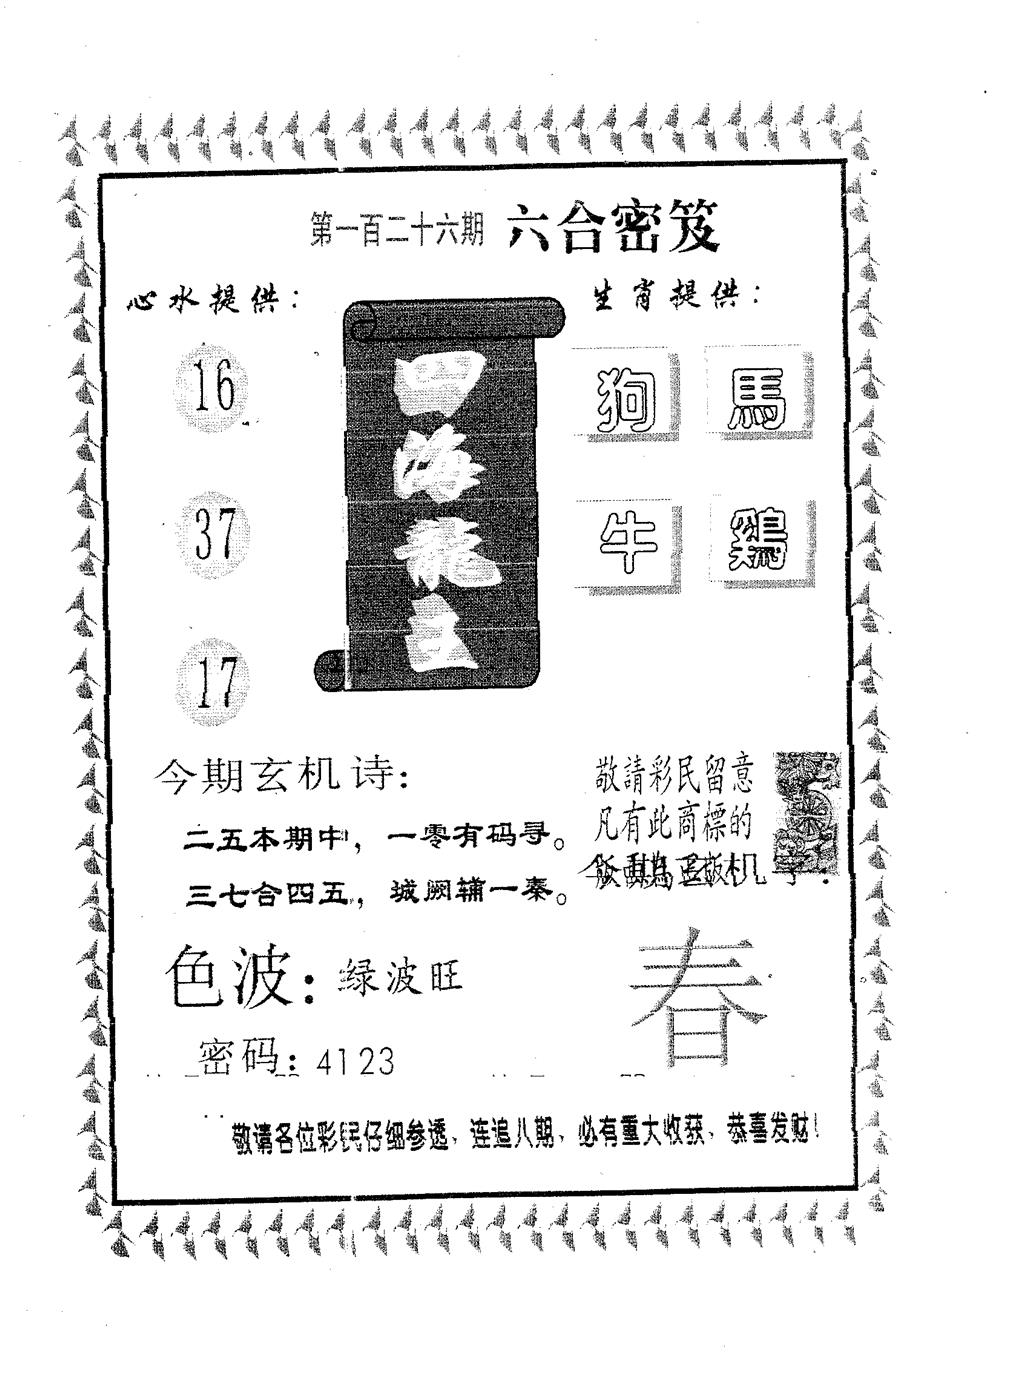 第一百二十六期 六合密笈
心水提供：
生肖提供：
16
37
17
四海龍王
狗 馬
牛 鷄
今期玄机诗：
二五本期中，一零有码寻。
三七合四五，城阙辅一秦。
敬請彩民留意
凡有此商標的
色波：绿波旺
密码：4123
春
敬请各位彩民仔细参透、连追八期、必有重大收获、恭喜发财！